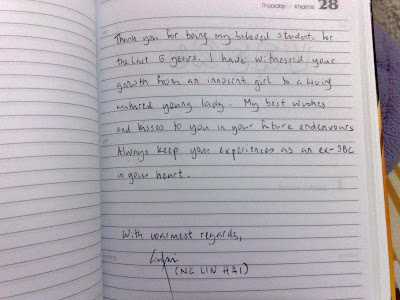 Thursday Khamis 28
Thank you for being my beloved student for
the last 5 years. I have witnessed your
growth from an innocent girl to a loving
matured young lady. My best wishes
and kisses to you in your future endeavours
Always keep your experiences as an ex-SBC
in your heart.
With warmest regards,
(NG LIN HAI)